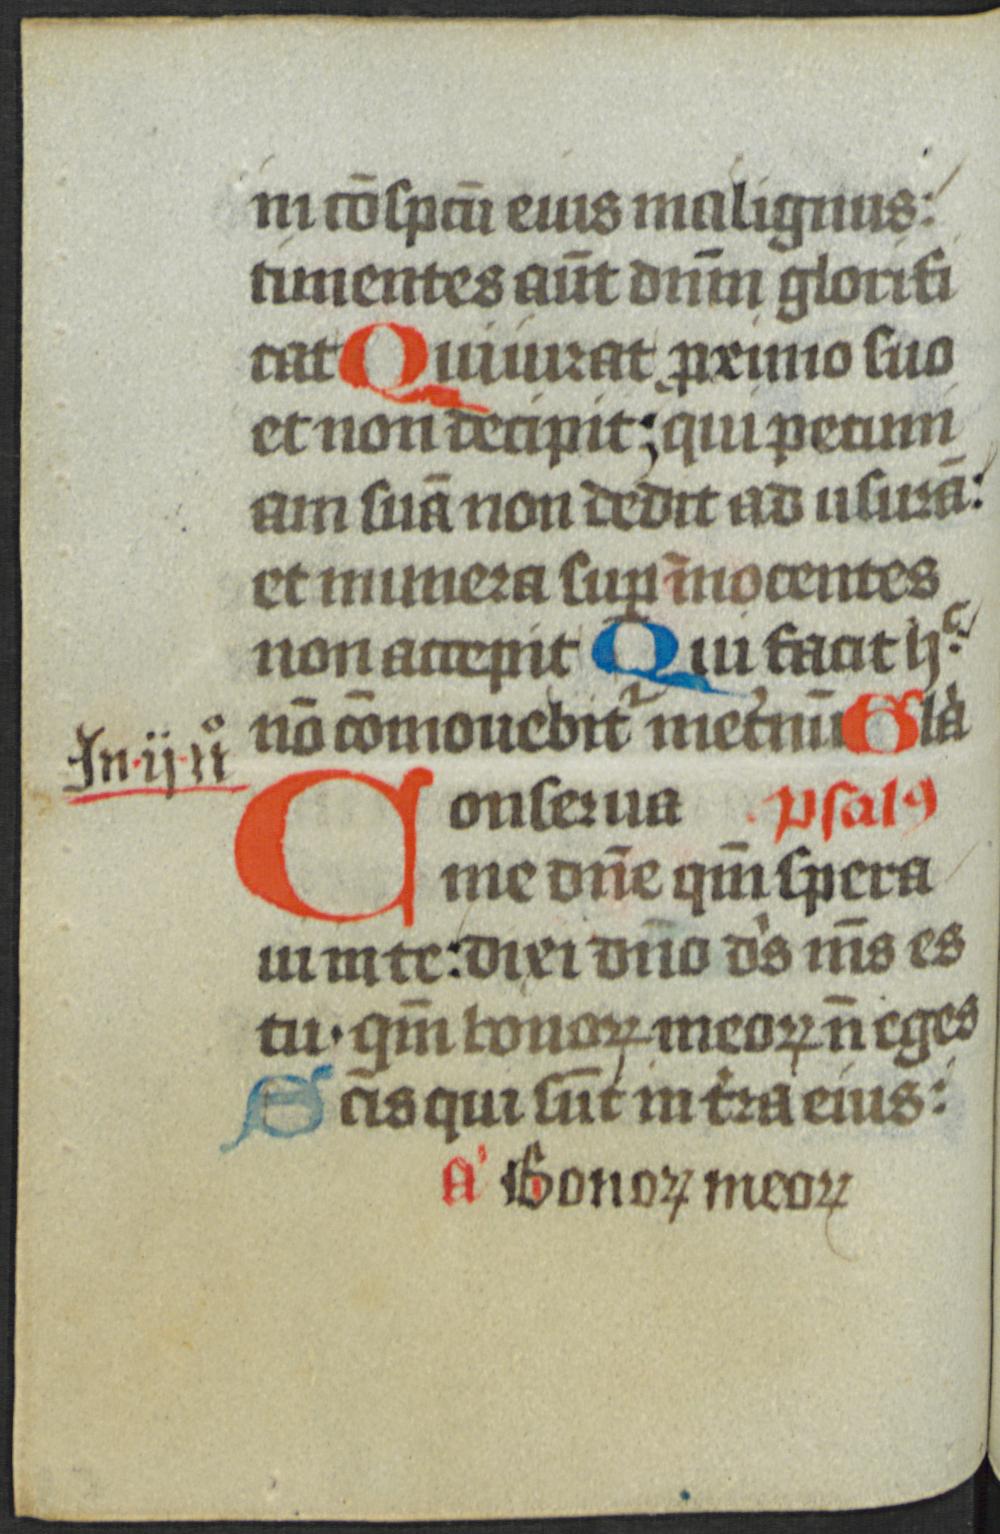 in cōspcū eius malignus:
timentes aūt dnm̄ glorifi
cat Qui iurat ꝓximo suo
et non decipit; qui pecuni
am suā non dedit ad usurā:
et munera suꝑ īnocentes
non accepit Qui facit hͨ:
nō cōmouebit᷑ ineťnū Gla
In·ij·nº
Conserua psalꝰ
me dn̄e qm̄ spera
ui in te: dixi dn̄o ds̓ ms̄ es
tu· qm̄ bonoꝝ meoꝝ n̄ eges
Sc̄is qui sūt in tr̓a eius:
A' Bonoꝝ meoꝝ